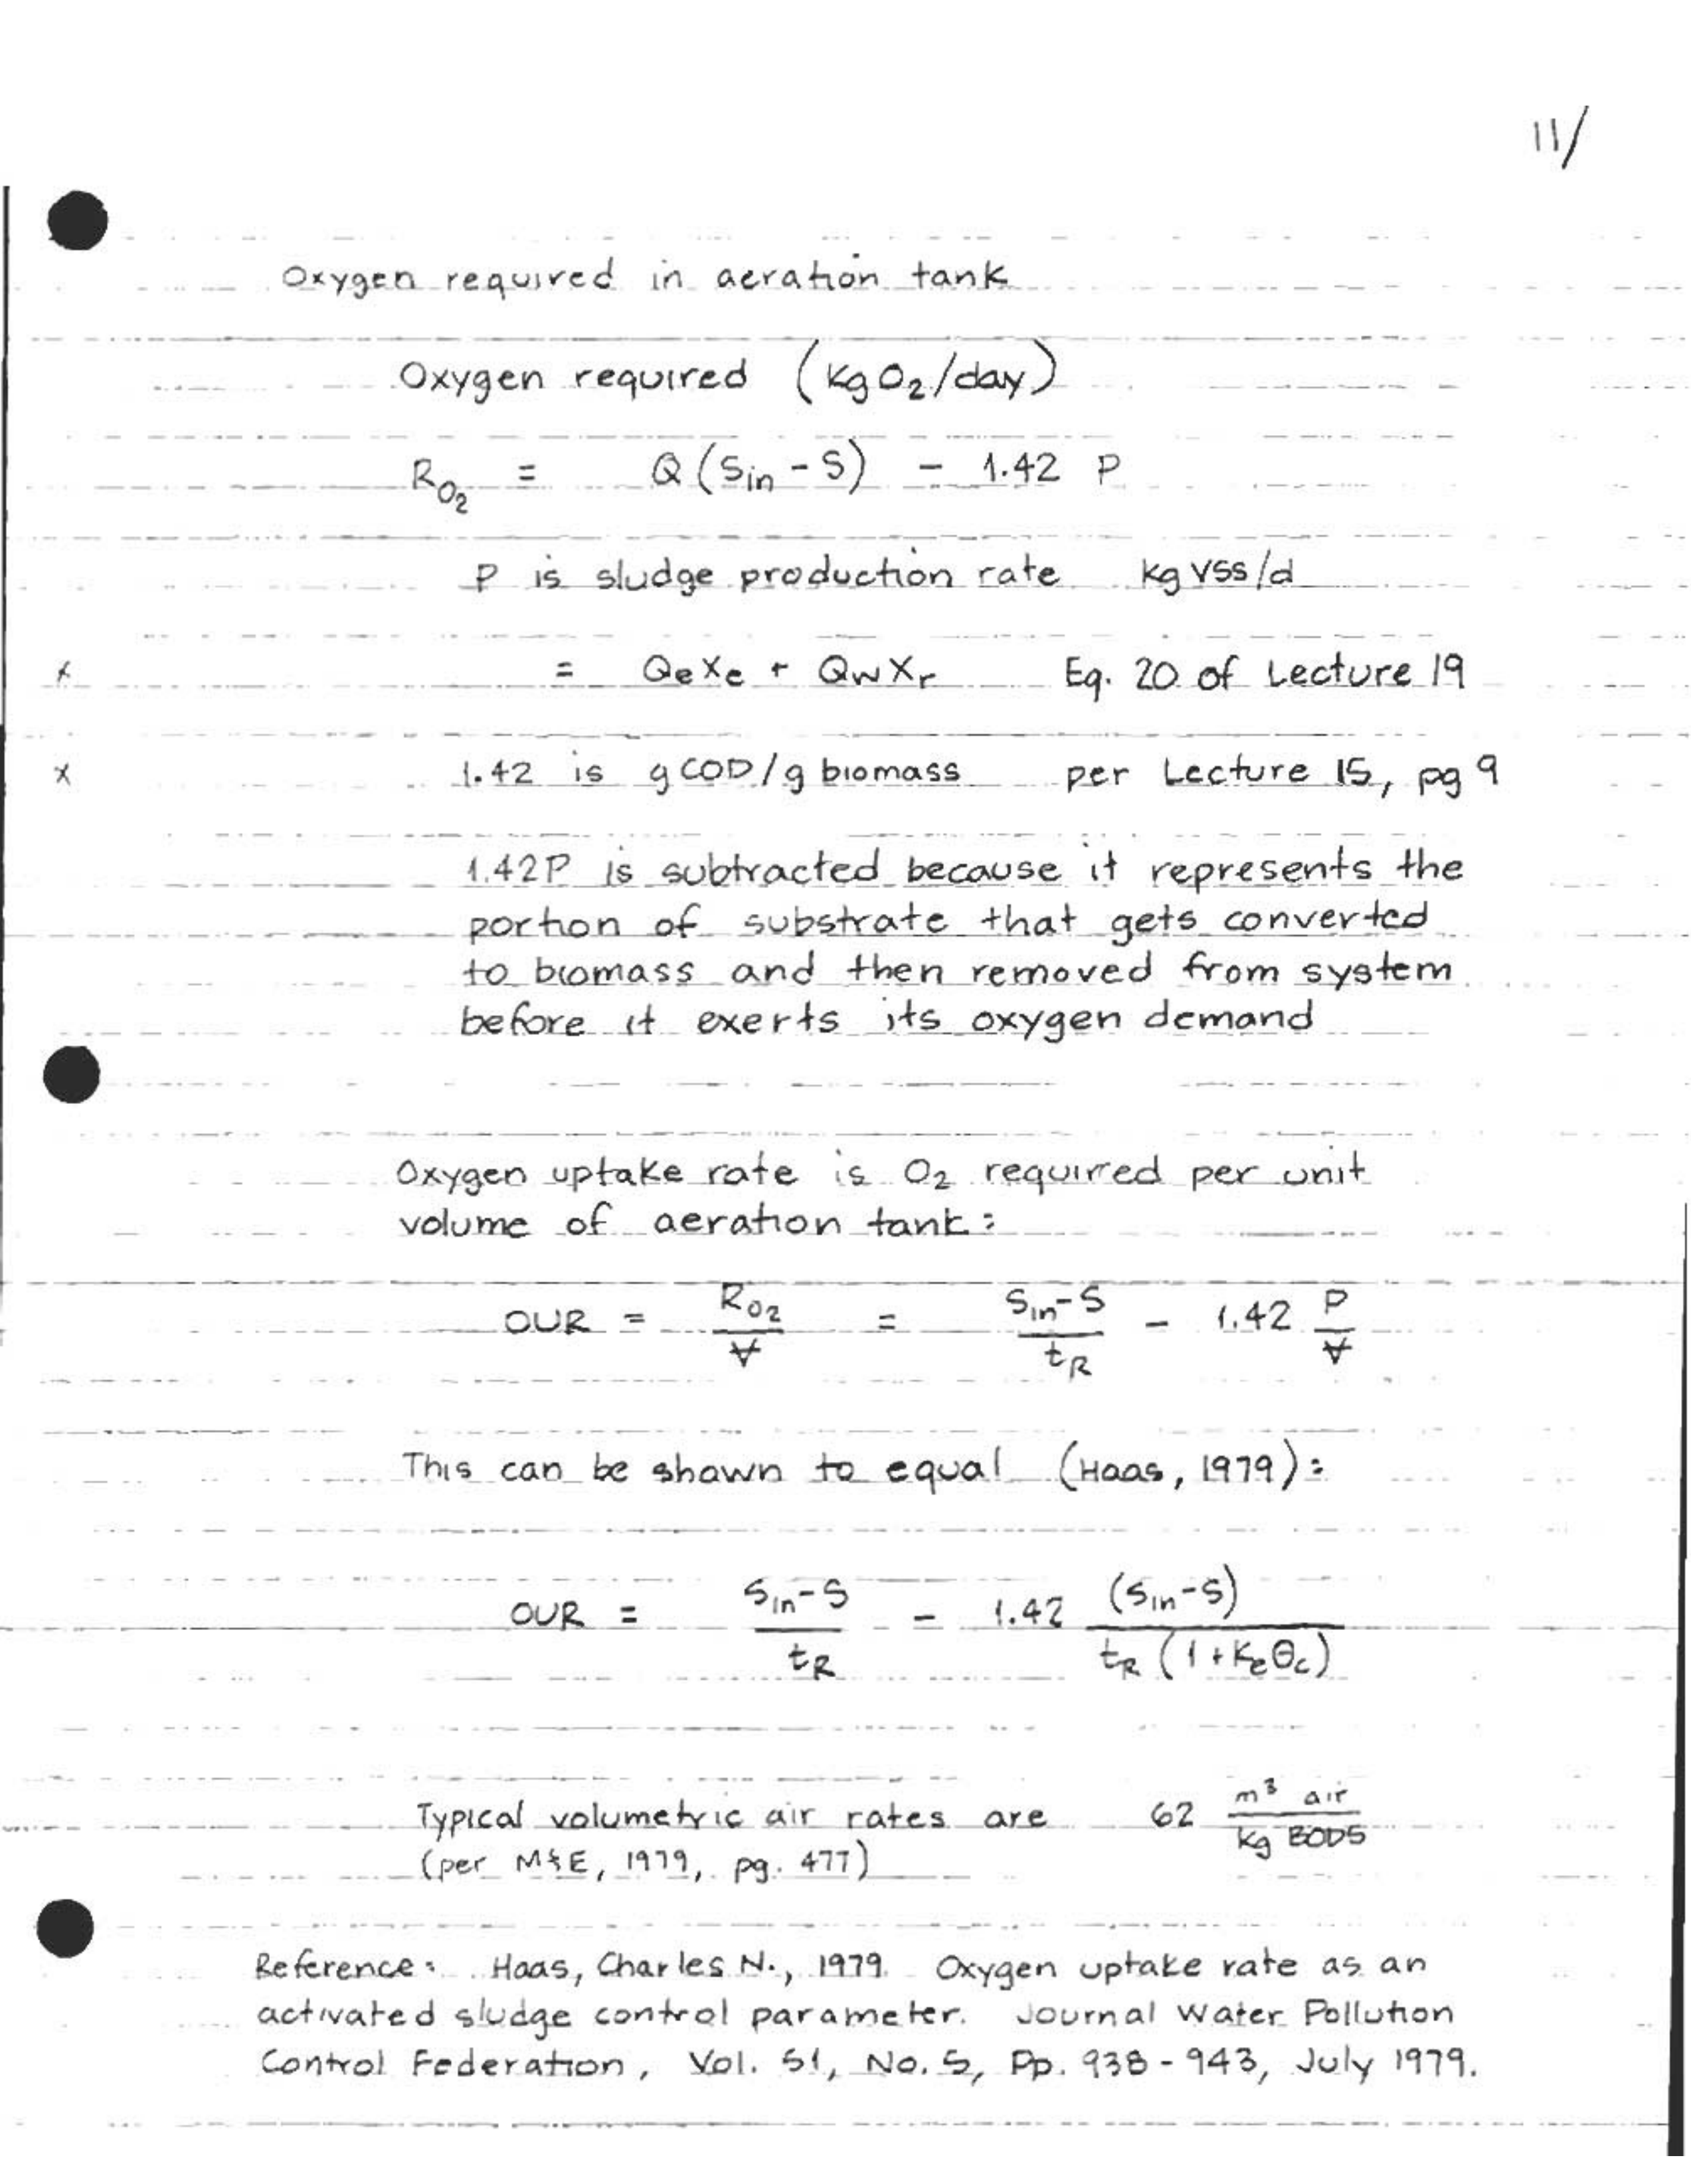 11/
Oxygen required in aeration tank
Oxygen required (kg O₂/day)
R_O₂ = Q (Sin - S) - 1.42 P
P is sludge production rate kg VSS/d
x = QeXe + QwXr Eq. 20 of Lecture 19
x 1.42 is g COD/g biomass per Lecture 15, pg 9
1.42P is subtracted because it represents the
portion of substrate that gets converted
to biomass and then removed from system
before it exerts its oxygen demand
Oxygen uptake rate is O₂ required per unit
volume of aeration tank:
OUR = R_O₂/V = (Sin-S)/tR - 1.42 P/V
This can be shown to equal (Haas, 1979):
OUR = (Sin-S)/tR - 1.42 (Sin-S)/(tR (1+keθc))
Typical volumetric air rates are 62 m³ air/kg BOD5
(per M&E, 1979, pg. 477)
Reference: Haas, Charles N., 1979. Oxygen uptake rate as an
activated sludge control parameter. Journal Water Pollution
Control Federation, Vol. 51, No. 5, Pp. 938-943, July 1979.